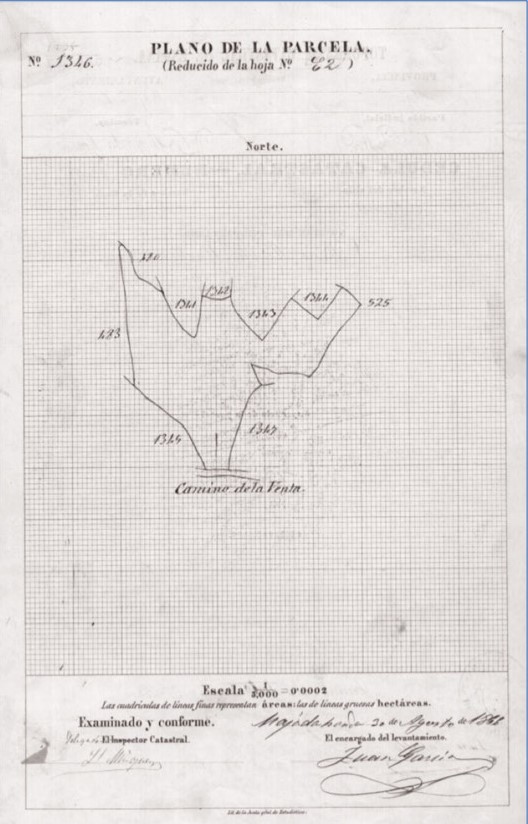 PLANO DE LA PARCELA.
Nº 1346.
(Reducido de la hoja Nº 62)
Norte.
420
1341
1342
1343
1344
525
423
1345
1347
Camino de la Venta.
Escala 1/5,000 = 0'0002
Las cuadrículas de líneas finas representan áreas: las de líneas gruesas hectáreas.
Examinado y conforme.
Majadahonda 20 de Agosto de
El Inspector Catastral.
El encargado del levantamiento.
Juan Garcia
Lit. de la Junta gral. de Estadística.